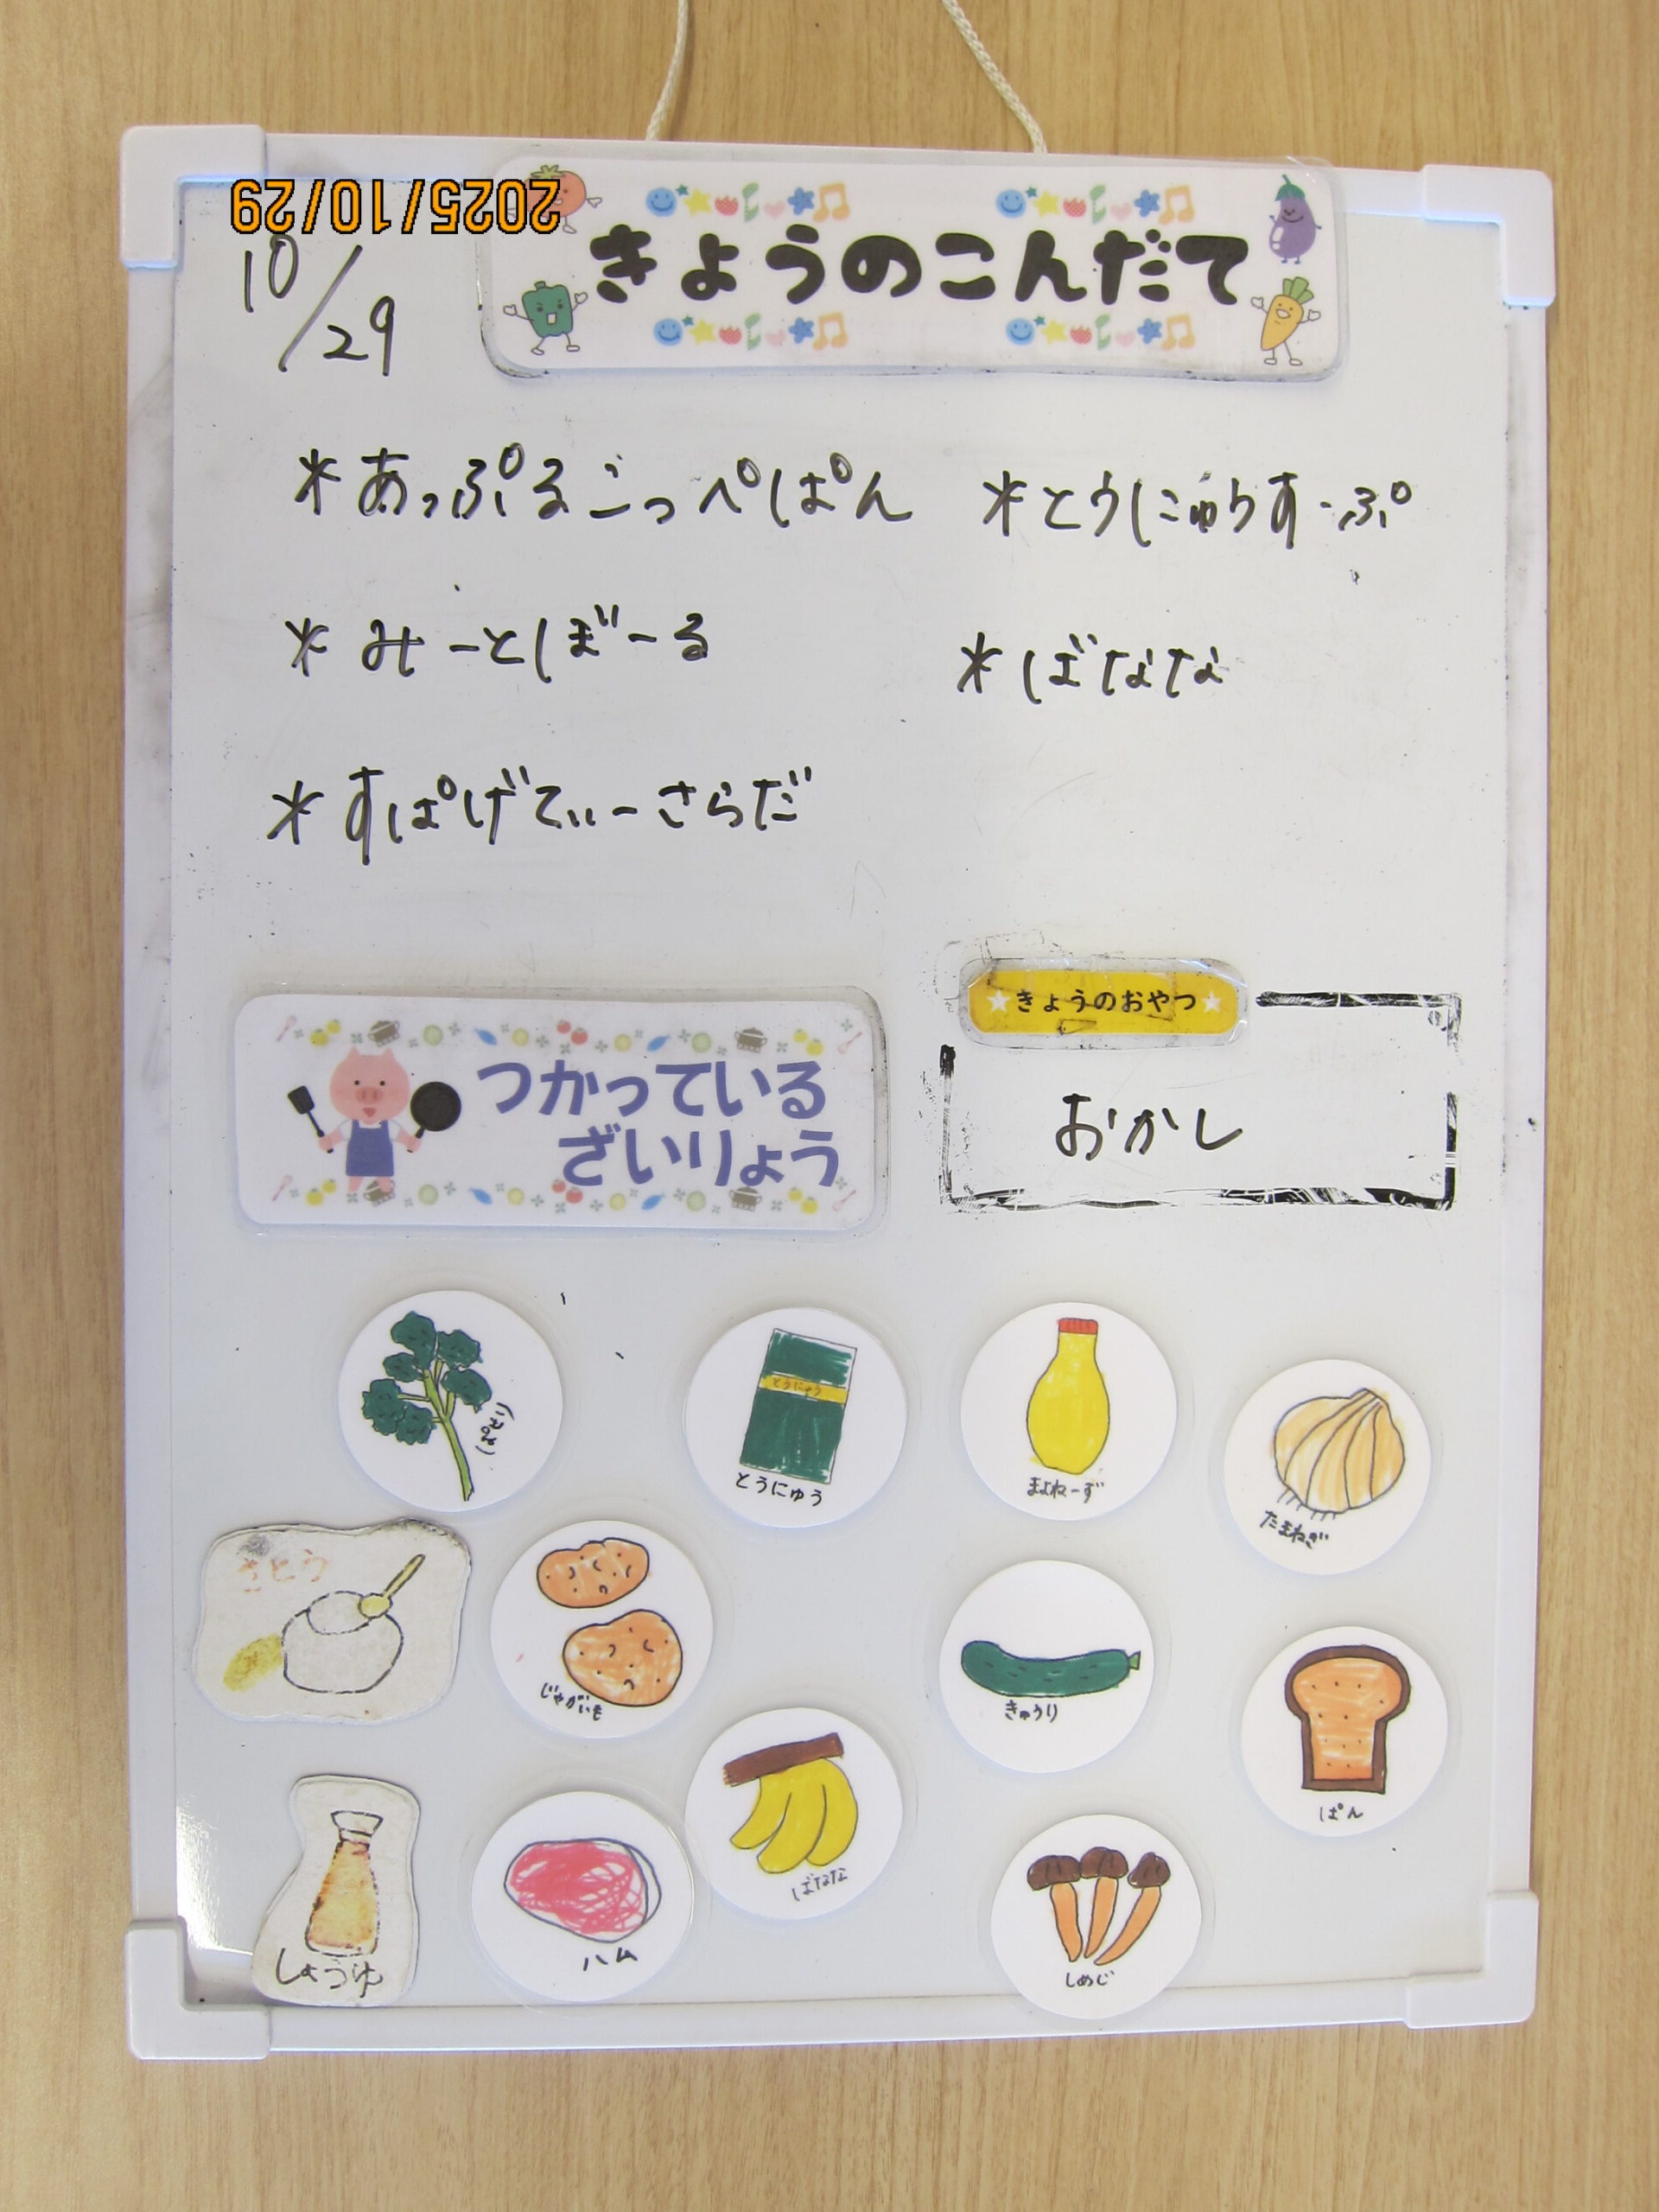 2025/10/29
きょうのこんだて
10/29
*あっぷるこっぺぱん
*とうにゅうすーぷ
*みーとぼーる
*ばなな
*すぱげてぃーさらだ
きょうのおやつ
おかし
つかっている
ざいりょう
ぱせり
とうにゅう
とうにゅう
まよねーず
たまねぎ
さとう
じゃがいも
きゅうり
ぱん
ばなな
しょうゆ
ハム
しめじ